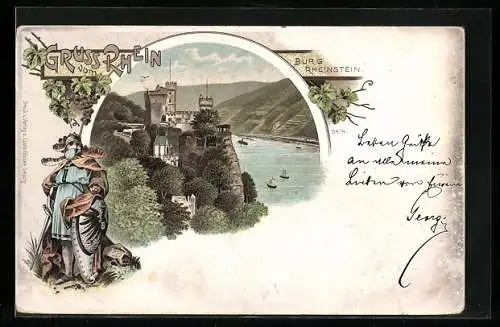 GRUSS vom RHEIN
BURG
RHEINSTEIN.
Lieben Grüße
an alle meine
Lieben von Eurem
Georg